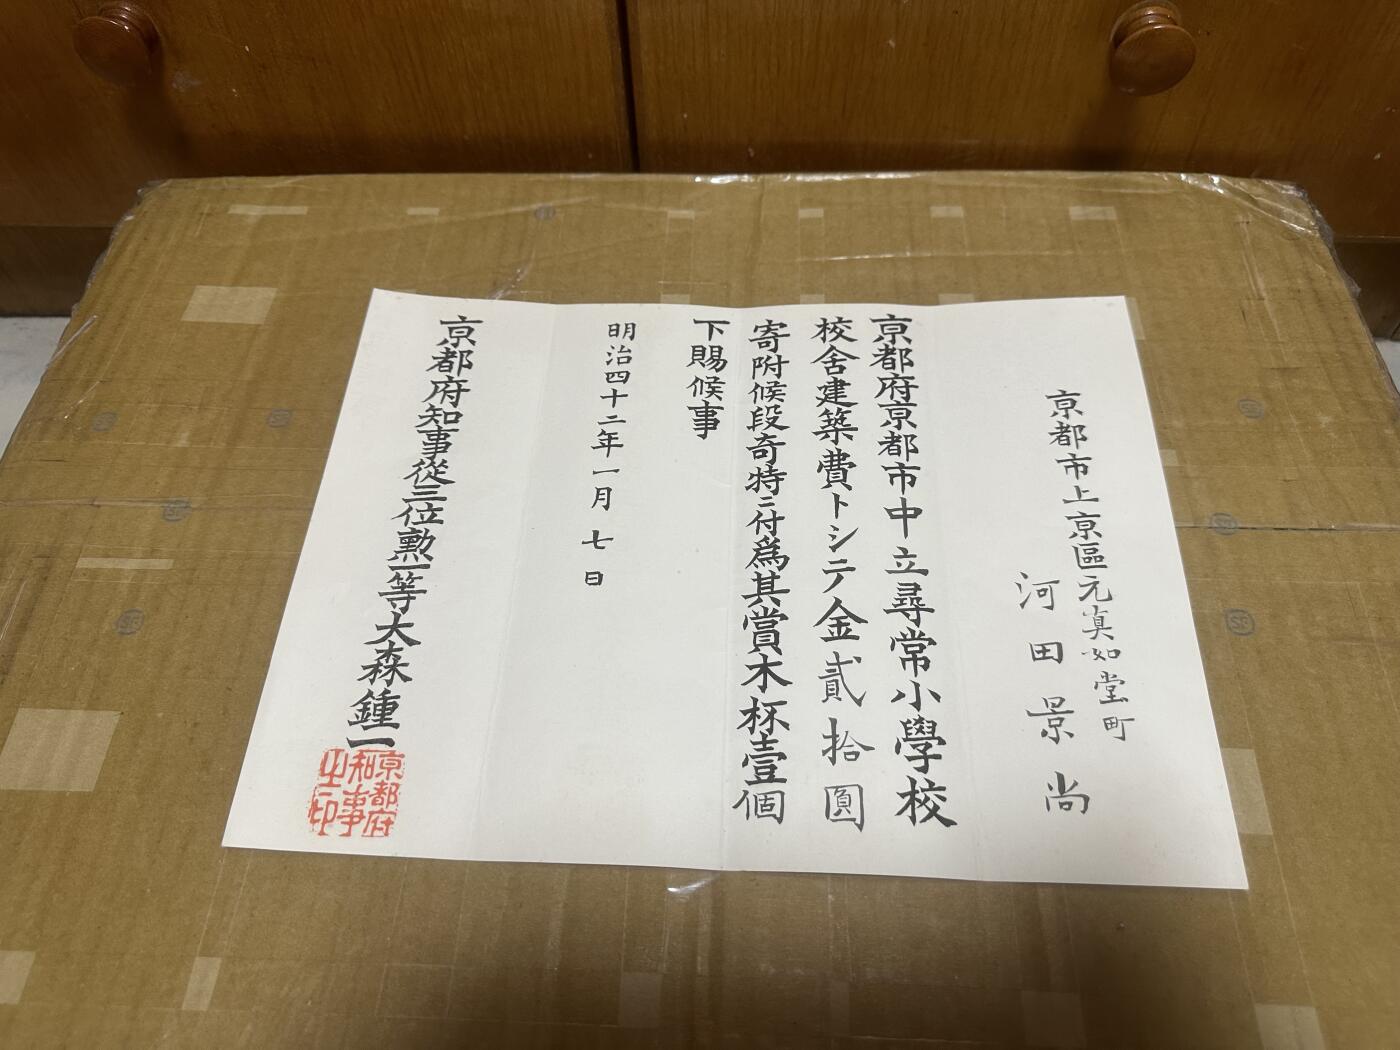 京都市上京區元真如堂町
河田景尚
京都府京都市中立尋常小學校
校舍建築費トシテ金貳拾圓
寄附候段奇特ニ付爲其賞木杯壹個
下賜候事
明治四十二年一月七日
京都府知事從三位勲一等大森鍾一
京都府
知事
之印